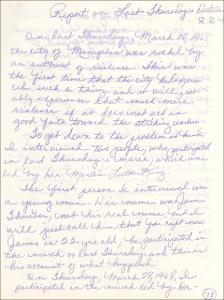 Report on Last Thursday's
On last Thursday, March 28, 1968
the city of Memphis was rocked by
an outburst of violence. This was
the first time that the city
such a thing and it will
experience
violence if it does not act in
good faith toward the
To get down to the problem at hand
I interviewed two people, who participated
in last Thursday's march, which was
led by Dr. Martin Luther King.
The first person I interviewed was
a young man. His name was James
Thurber, not his real name, but I
will just call him that for right now.
James is 22 yr. old, he participated in
the march on last Thursday and this is
his account of what happened.
On Thursday, March 28, 1968, I
participated in the march led by Dr.